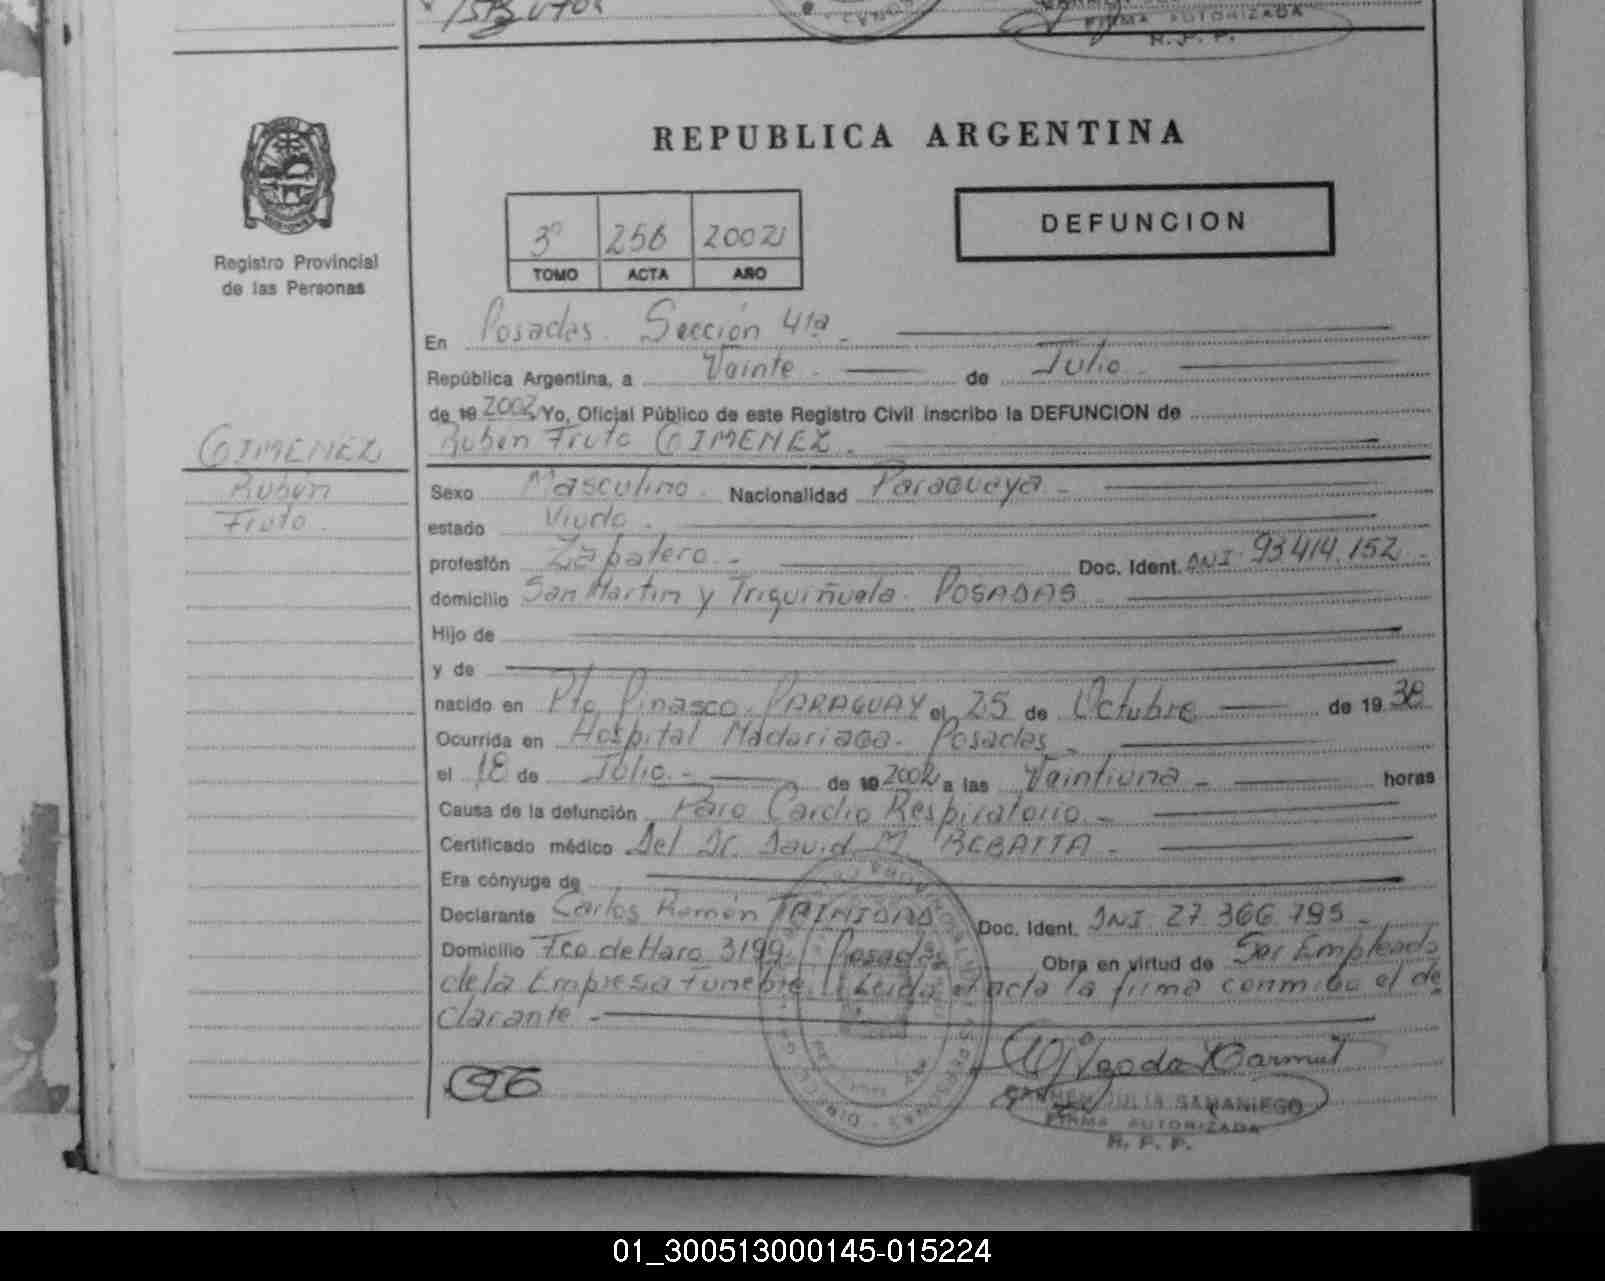 FIRMA AUTORIZADA
R. P. P.
REPUBLICA ARGENTINA
3º 256 2002
TOMO ACTA AÑO
DEFUNCION
Registro Provincial
de las Personas
En Posadas. Sección 4ta.
República Argentina, a Veinte de Julio
de 19 2002 Yo, Oficial Público de este Registro Civil inscribo la DEFUNCION de
Ruben Fruto GIMENEZ.
GIMENEZ
Rubén
Fruto.
Sexo Masculino. Nacionalidad Paraguaya.-
estado Viudo.
profesión Zapatero.- Doc. Ident. DNI 93.414.152.-
domicilio San Martin y Triguiñuela. POSADAS
Hijo de
y de
nacido en Pto Pinasco. PARAGUAY el 25 de Octubre de 19 38
Ocurrida en Hospital Madariaga. Posadas.
el 18 de Julio.- de 19 2002 a las Veintiuna.- horas
Causa de la defunción Paro Cardio Respiratorio.-
Certificado médico Del Dr. David M. BEBATTA.-
Era cónyuge de
Declarante Carlos Ramón TRINIDAD Doc. Ident. DNI 27.366.795.-
Domicilio Fco de Haro 3199. Posadas Obra en virtud de Ser Empleado
de la Empresa Funebre. Leida el acta la firma conmigo el de
clarante.-
CARMEN JULIA SAMANIEGO
FIRMA AUTORIZADA
R. P. P.
01_300513000145-015224